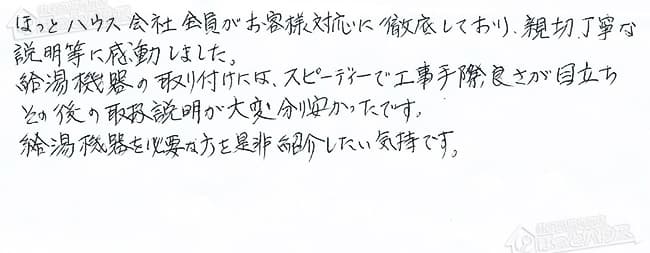 ほっとハウス会社全員がお客様対応に徹底しており、親切丁寧な
説明等に感動しました。
給湯機器の取り付けには、スピーディーで工事手際良さが目立ち
その後の取扱説明が大変分り安かったです。
給湯機器を必要な方を是非紹介したい気持です。
ほっとハウス